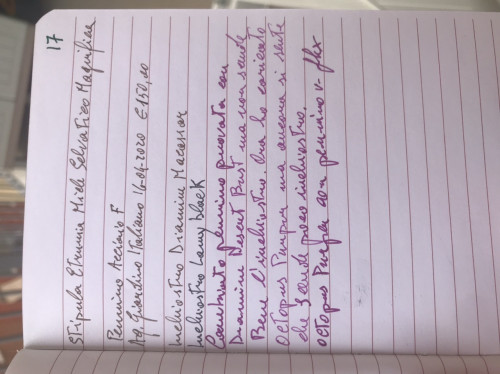 17
Stipula Etruria Miele Selvatico Magnifica
Pennino Acciaio F
Giardino Italiano 16-04-2020 € 150,00
Inchiostro Diamine Macassar
Inchiostro Lamy black
Cambiato pennino provato con
Diamine Desert Bust ma non scende
Bene l'inchiostro. Ora ho caricato
Octopus ma ancora si sente
che scende poco inchiostro.
Octopus con pennino v-flex